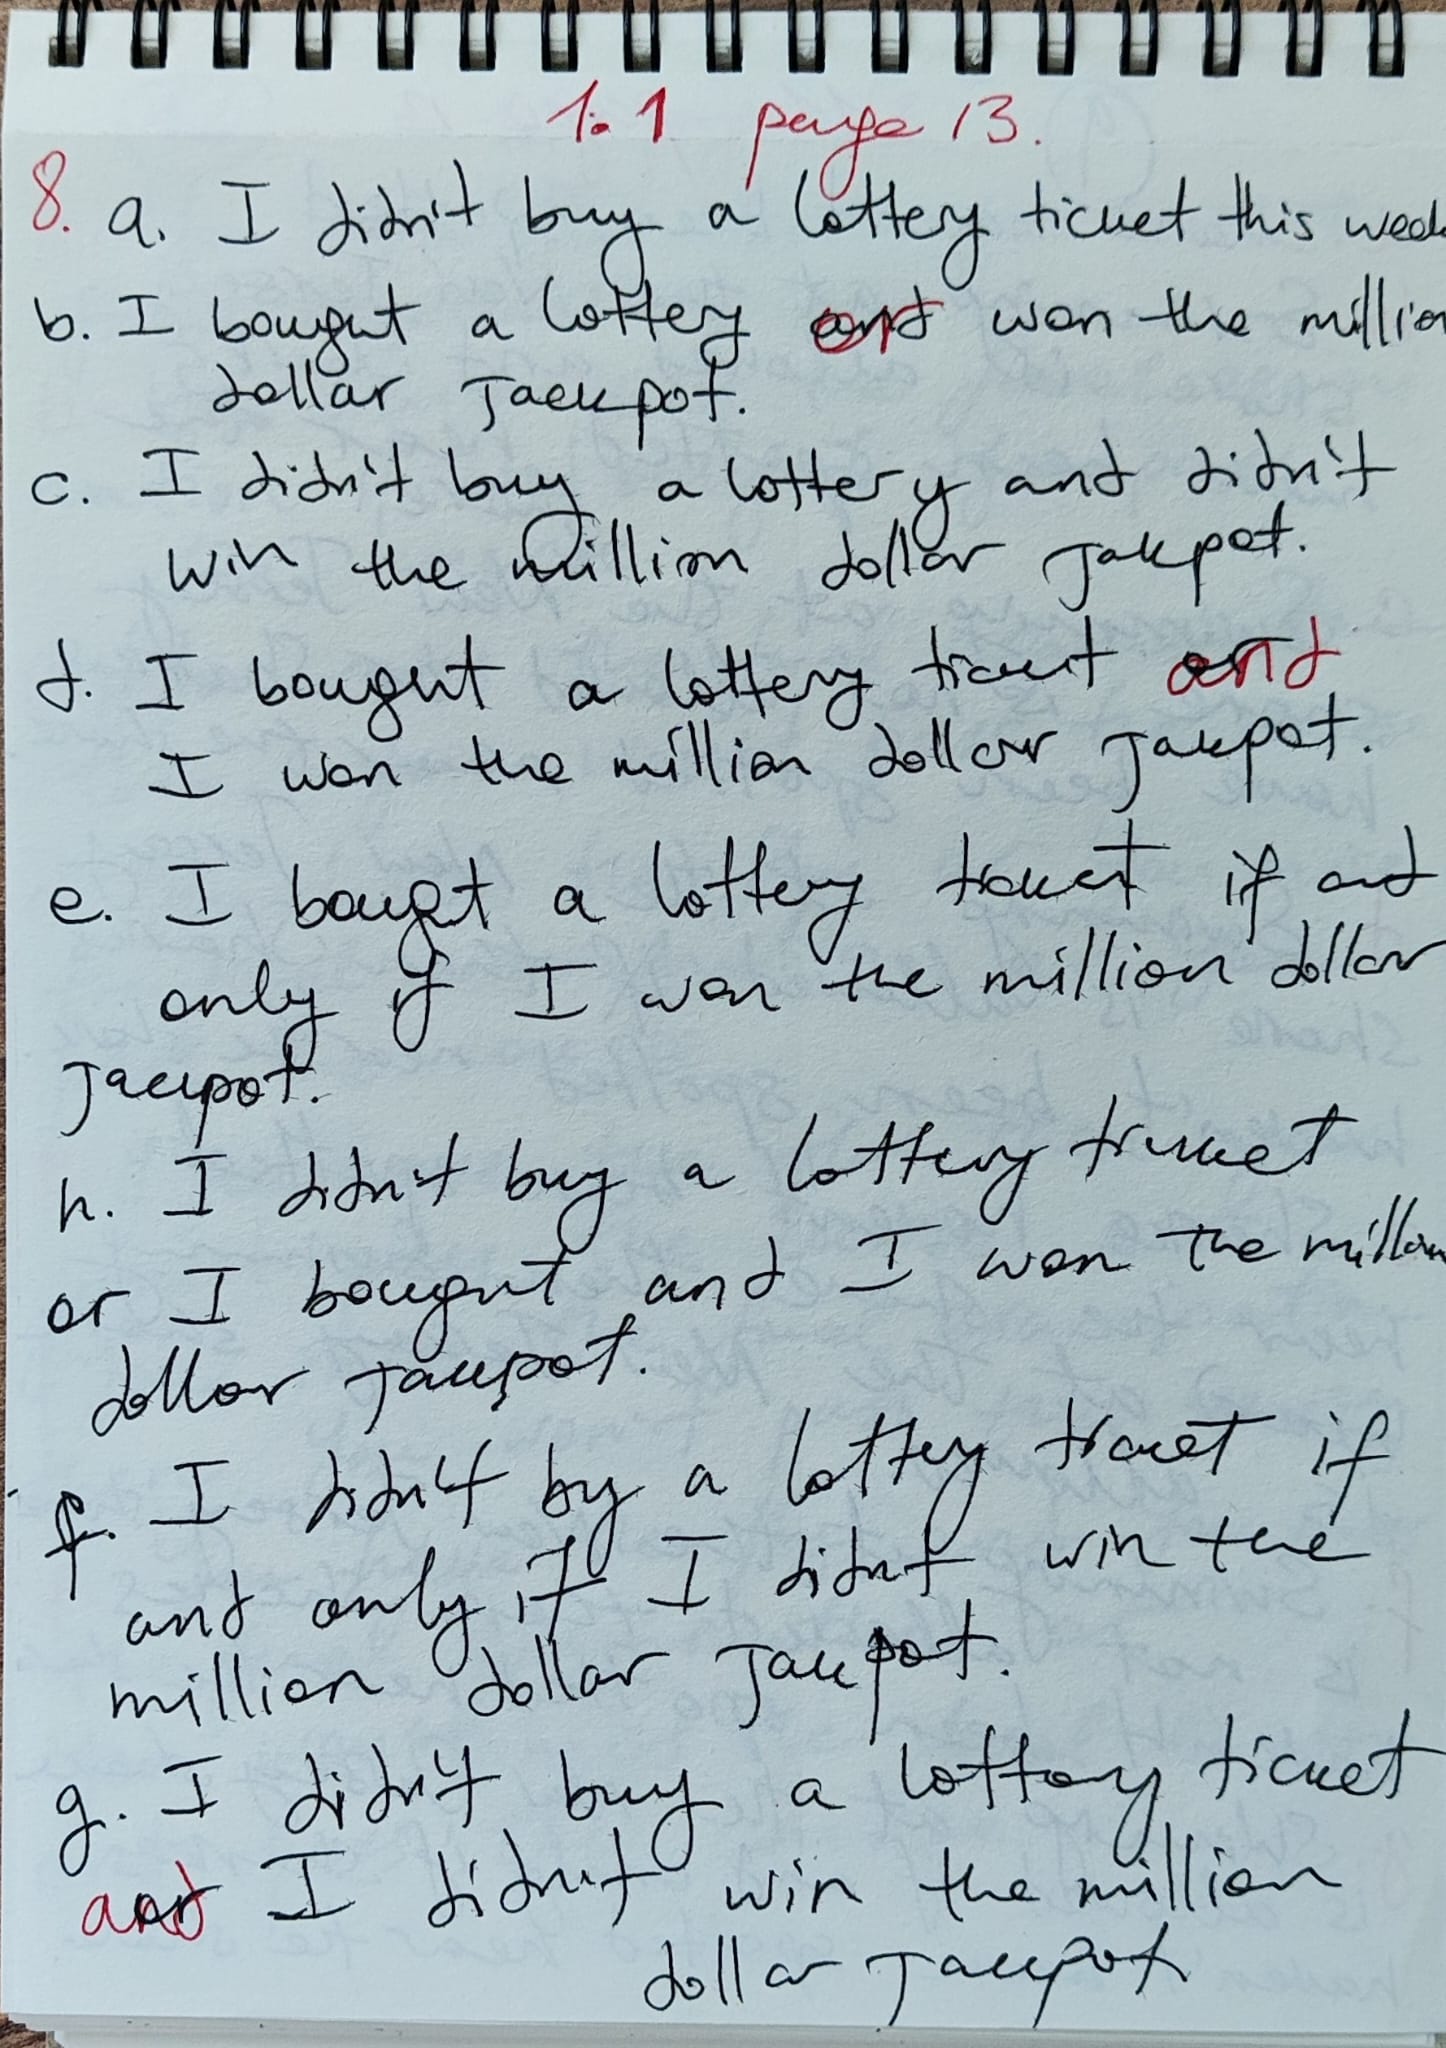 1.1 page 13.
8. a. I didn't buy a lottery ticket this week
b. I bought a lottery or won the million
dollar jackpot.
c. I didn't buy a lottery and didn't
win the million dollar jakpot.
d. I bought a lottery ticket and
I won the million dollar jakpot.
e. I bought a lottery ticket if and
only if I won the million dollar
jackpot.
h. I didn't buy a lottery ticket
or I bought and I won the million
dollar jackpot.
f. I didn't by a lottery ticket if
and only if I didn't win the
million dollar jackpot.
g. I didn't buy a lottery ticket
and I didn't win the million
dollar jackpot